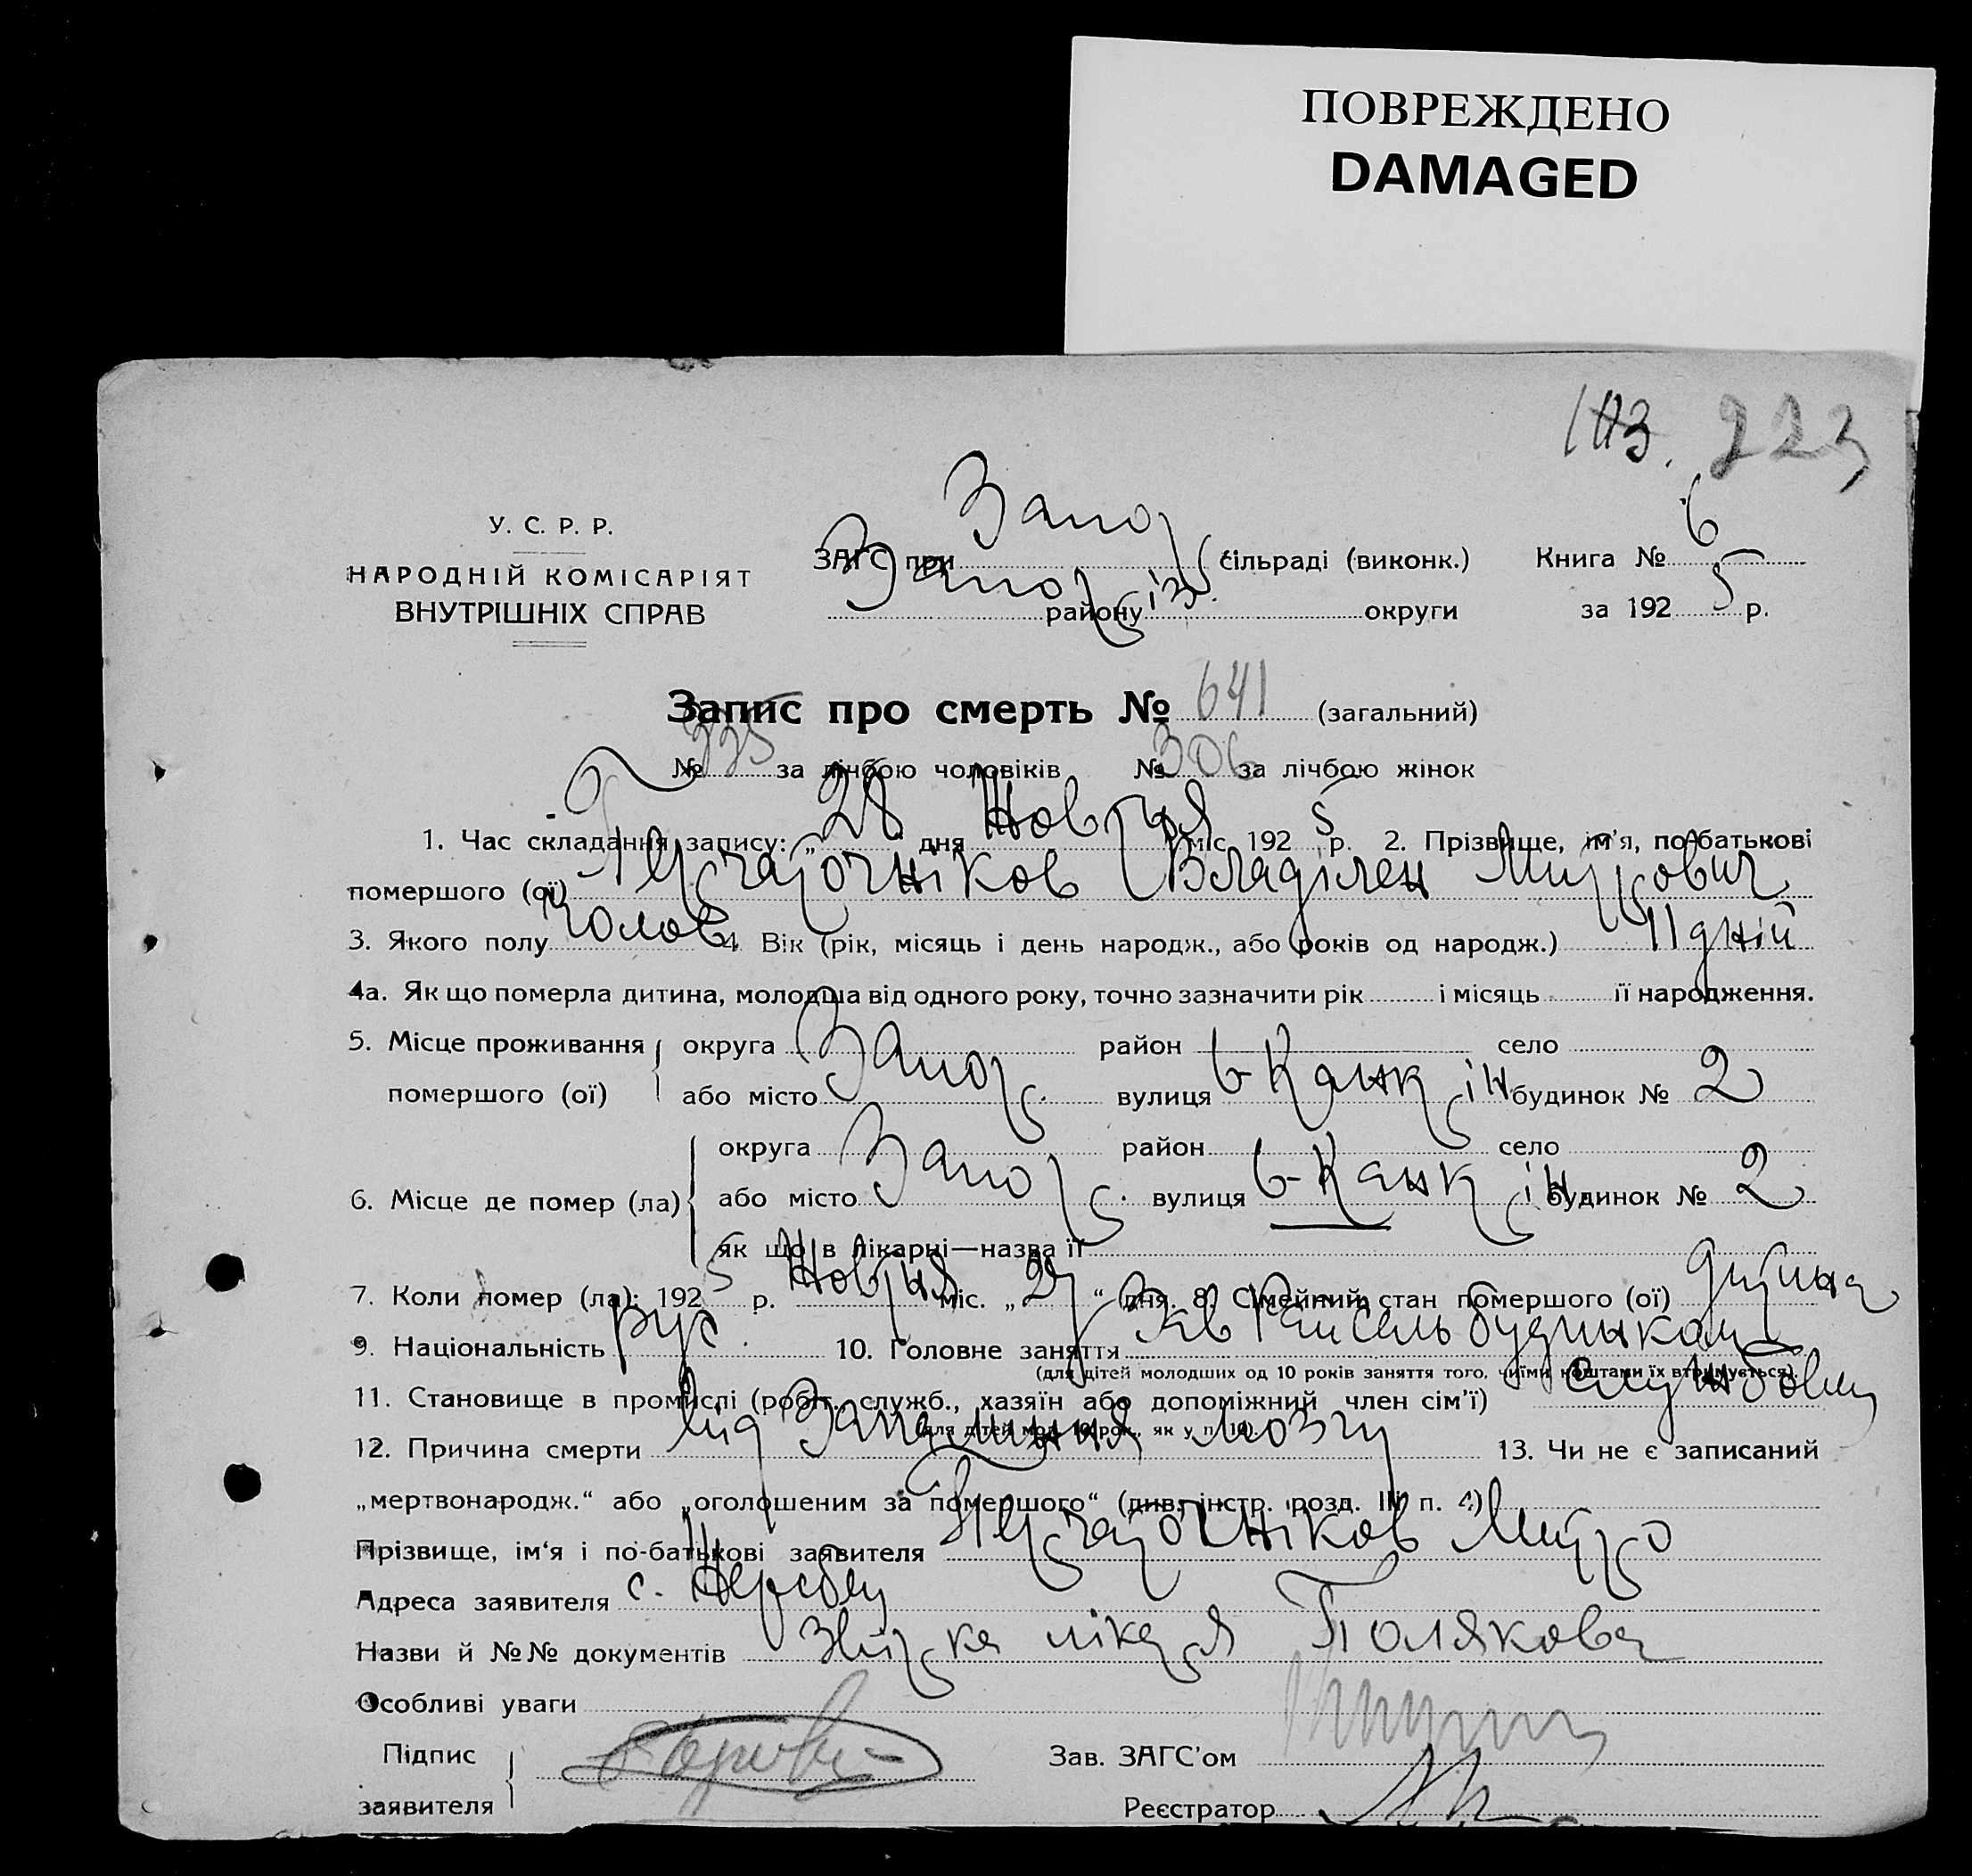 ПОВРЕЖДЕНО
DAMAGED
113. 223
У. С. Р. Р.
НАРОДНІЙ КОМІСАРІЯТ
ВНУТРІШНІХ СПРАВ
ЗАГС при Запор сільраді (виконк.) Книга № 6
Запоріз. району округи за 1925 р.
Запис про смерть № 641 (загальний)
№ 335 за лічбою чоловіків № 306 за лічбою жінок
1. Час складання запису: „28 дня Жовтня міс. 1925 р. 2. Прізвище, ім'я, по-батькові
помершого (ої) Перчаточніков Владілен Митрович
3. Якого полу Чолов 4. Вік (рік, місяць і день народж., або років од народж.) 11 дній
4а. Як що померла дитина, молодша від одного року, точно зазначити рік і місяць її народження.
5. Місце проживання округа район село
помершого (ої) або місто Запор. вулиця б-Канкрін будинок № 2
6. Місце де помер (ла) округа район село
або місто Запор. вулиця б-Канкрін будинок № 2
як що в лікарні—назва її
7. Коли помер (ла): 1925 р. Жовтня міс. „27“ дня. 8. Сімейний стан помершого (ої) дитина
9. Національність рус. 10. Головне заняття Зав Райсельбудинком
(для дітей молодших од 10 років заняття того, чиїми коштами їх втримується).
11. Становище в промислі (робіт., служб., хазяїн або допоміжний член сім'ї) Службовец
(для дітей мол. 10 рок., як у п. 10).
12. Причина смерти від Запалення мозгу 13. Чи не є записаний
„мертвонародж.“ або „оголошеним за помершого“ (див. інстр. розд. III п. 4)
Прізвище, ім'я і по-батькові заявителя Перчаточніков Митро
Адреса заявителя с. Жеребец
Назви й №№ документів Звістка лікаря Полякова
Особливі уваги
Підпис
заявителя
Зав. ЗАГС'ом
Реєстратор